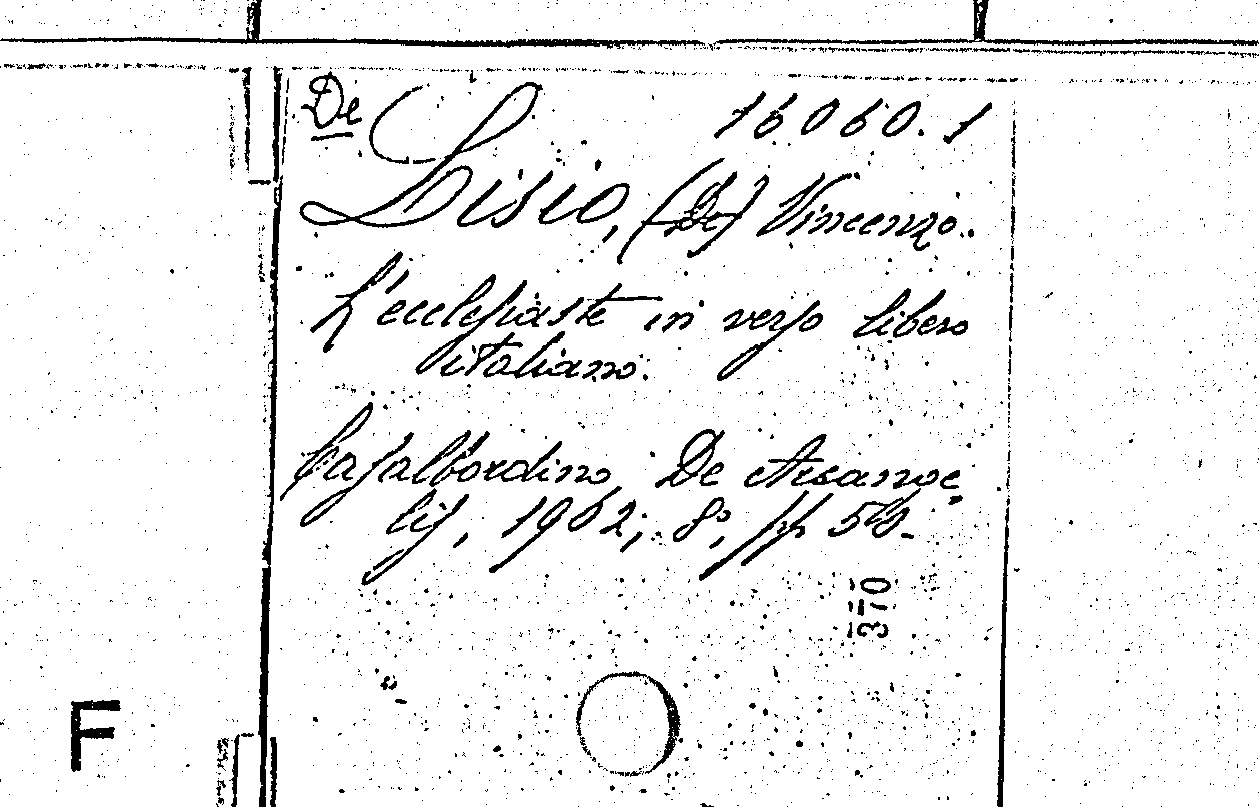 De
16060.1
Lisio, (De) Vincenzo.
L'ecclesiaste in verso libero
italiano.
Casalbordino, De Arcange
lis, 1902; 8°, pp
370
F